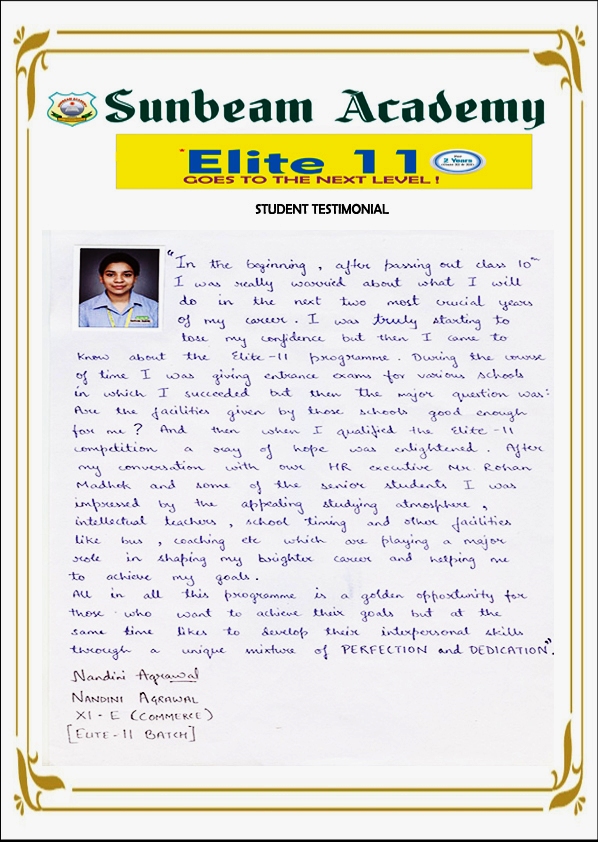 Sunbeam Academy
Elite 11
For
2 Years
GOES TO THE NEXT LEVEL !
STUDENT TESTIMONIAL
"In the beginning , after passing out class 10th
I was really worried about what I will
do in the next two most crucial years
of my career . I was truly starting to
lose my confidence but then I came to
know about the Elite-11 programme . During the course
of time I was giving entrance exams for various schools
in which I succeeded but then the major question was:
Are the facilities given by those schools good enough
for me ? And then when I qualified the Elite-11
competition a ray of hope was enlightened . After
my conversation with our HR executive Mr. Rohan
Madhok and some of the senior students I was
impressed by the appealing studying atmosphere ,
intellectual teachers , school timing and other facilities
like bus , coaching etc which are playing a major
role in shaping my brighter career and helping me
to achieve my goals .
All in all this programme is a golden opportunity for
those who want to achieve their goals but at the
same time likes to develop their interpersonal skills
through a unique mixture of PERFECTION and DEDICATION".
Nandini Agrawal
NANDINI AGRAWAL
XI - E (COMMERCE)
[ELITE-11 BATCH]